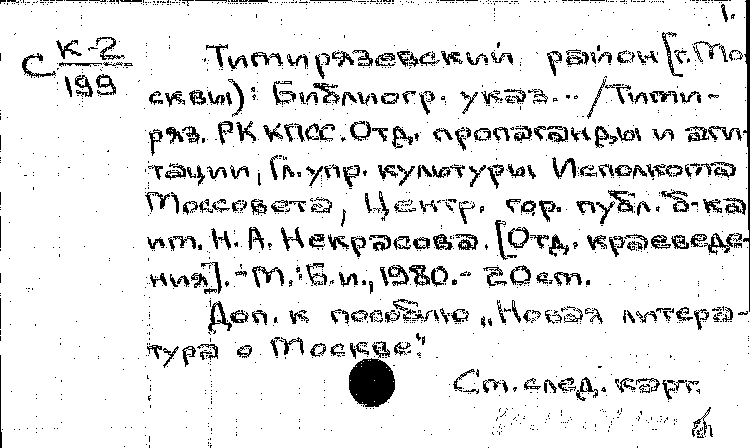 1.
С К-2/199
Тимирязевский район [г. Мо-
сквы): Библиогр. указ... / Тими-
ряз. РК КПСС. Отд. пропаганды и аги-
тации, Гл. упр. культуры Исполкома
Моссовета, Центр. гор. публ. б-ка
им. Н. А. Некрасова. [Отд. краеведе-
ния]. - М.: Б. и., 1980. - 20 см.
Доп. к пособию „Новая литера-
тура о Москве".
См. след. карт.